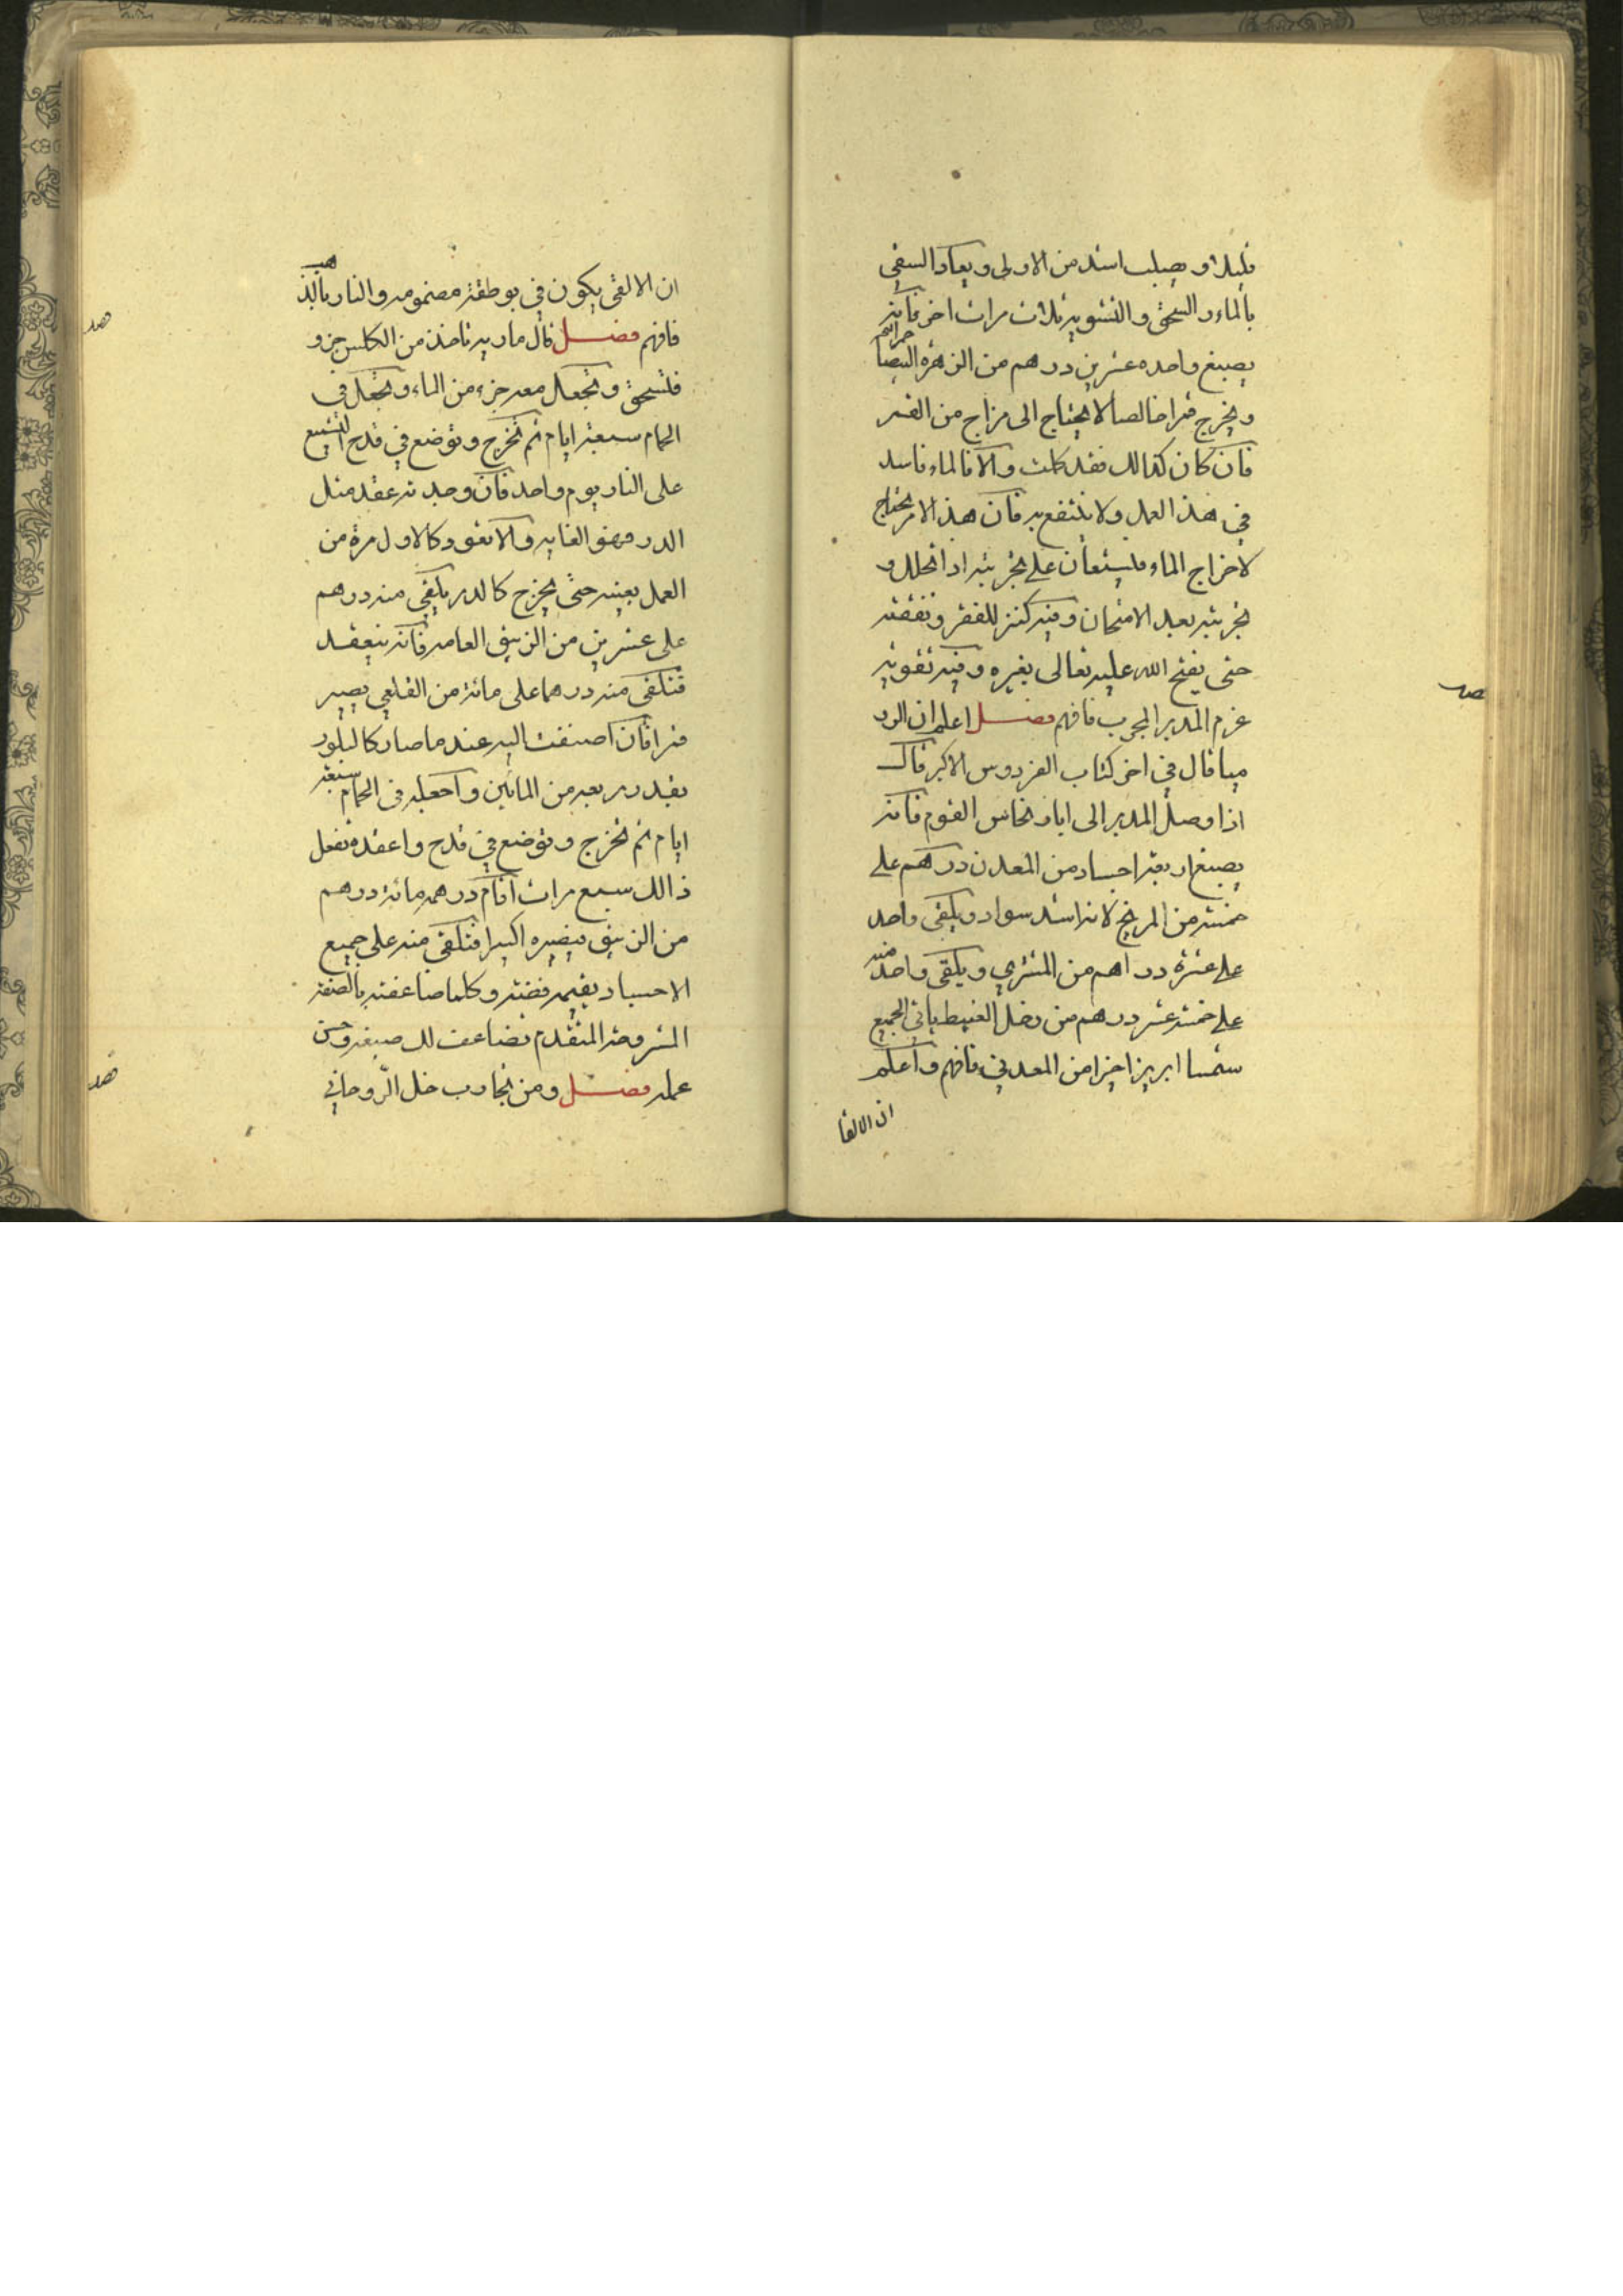 قليلا ويصلب اشد من الاولى ويعاد السقي
بالماء والسحق والتشويه ثلاث مرات اخر فانه
يصبغ واحده عشرين درهم من الزهرة البيضا
ويخرج قمرا خالصا لا يحتاج الى مزاج من القمر
فان كان كذالك فقد كملت والا فالماء فاسد
في هذ العمل ولا ينتفع به فان هذ الامر يحتاج
لاخراج الماء فليستعان على تجربته اذا انحلل و
تجربته بعد الامتحان وفيه كنز للفقر ونفقته
حتى يفتح الله عليه تعالى بغيره وفيه تقويه
عزم المدبر المجرب فافهم فصل اعلم ان
قال في اخر كتاب الفردوس الاكبر قال
اذا وصل المدبر الى ابار نحاس القوم فانه
يصبغ اربعة اجساد من المعدن درهم على
خمسة من المريخ لانه اشد سواد ويلقى واحد
على عشره دراهم من المشتري ويلقى واحد منه
على خمسة عشر درهم من زحل الغبيط ياتي الجميع
شمسا ابريزا خيرا من المعدني فافهم واعلم
ان الالقا
ان الالقى يكون في بوطقة مضمومه والنار
فافهم فصل قال ماريه تاخذ من الكلس جزو
فتسحق وتجعل معه جزء من الماء وتجعل في
الحمام سبعة ايام ثم تخرج وتوضع في قدح التشميع
على النار يوم واحد فان وجدته عقد مثل
الدر فهو الغايه والا تعود كالاول مرة من
العمل بعينه حتى يخرج كالدر يلقي منه درهم
على عشرين من الزيبق العامه فانه ينعقد
فتلقى منه درهما على مائة من القلعي يصير
قمرا فان اضفت اليه عند ما صار كالبلور
بقدر ربعه من المائين واجعله في الحمام سبعة
ايام ثم تخرج وتوضع في قدح واعقده تفعل
ذالك سبع مرات اقام درهمه مائة درهم
من الزيبق فيصيره اكسيرا فتلقى منه على جميع
الاجساد يقيمه فضة وكلما ضاعفته بالصفة
المشروحة المتقدم تضاعف لك صبغه وحسن
عمله فصل ومن تجارب خل الروحاني